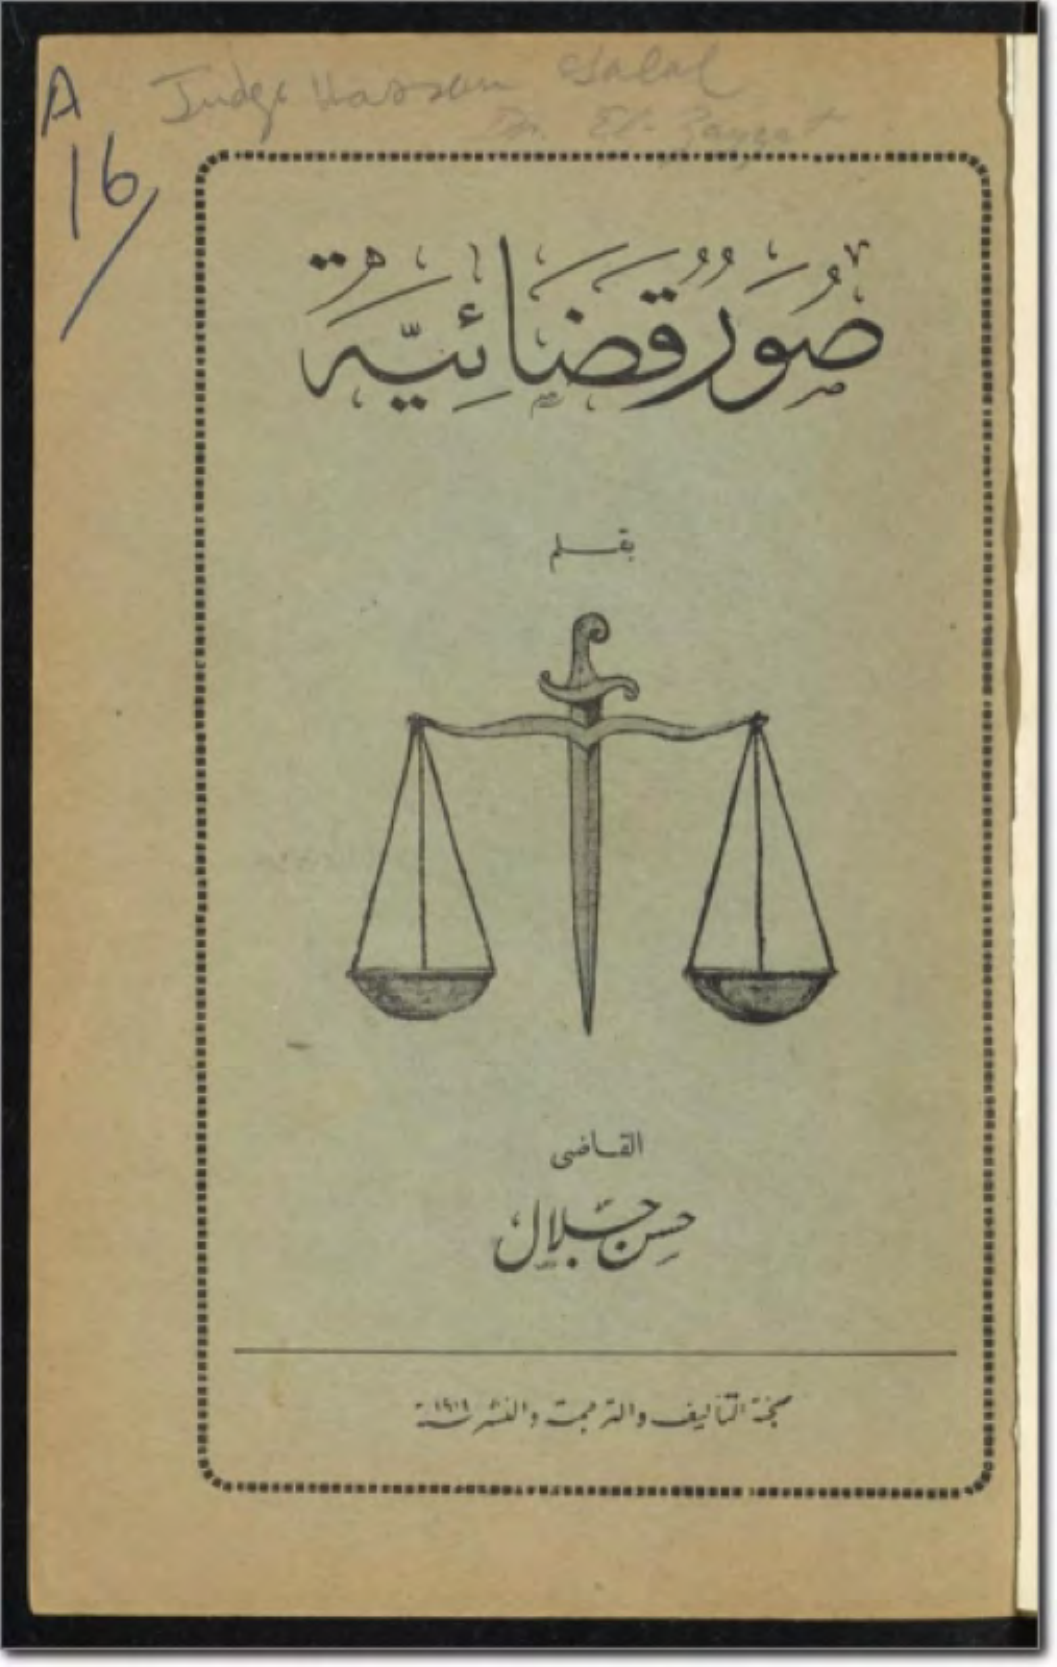 A
16/
Judge Hassan Galal
Dr. El-Zayyat
صُوَرٌ قَضَائِيَّة
بقلم
القاضى
حسن جلال
لجنة التأليف والترجمة والنشر سنة